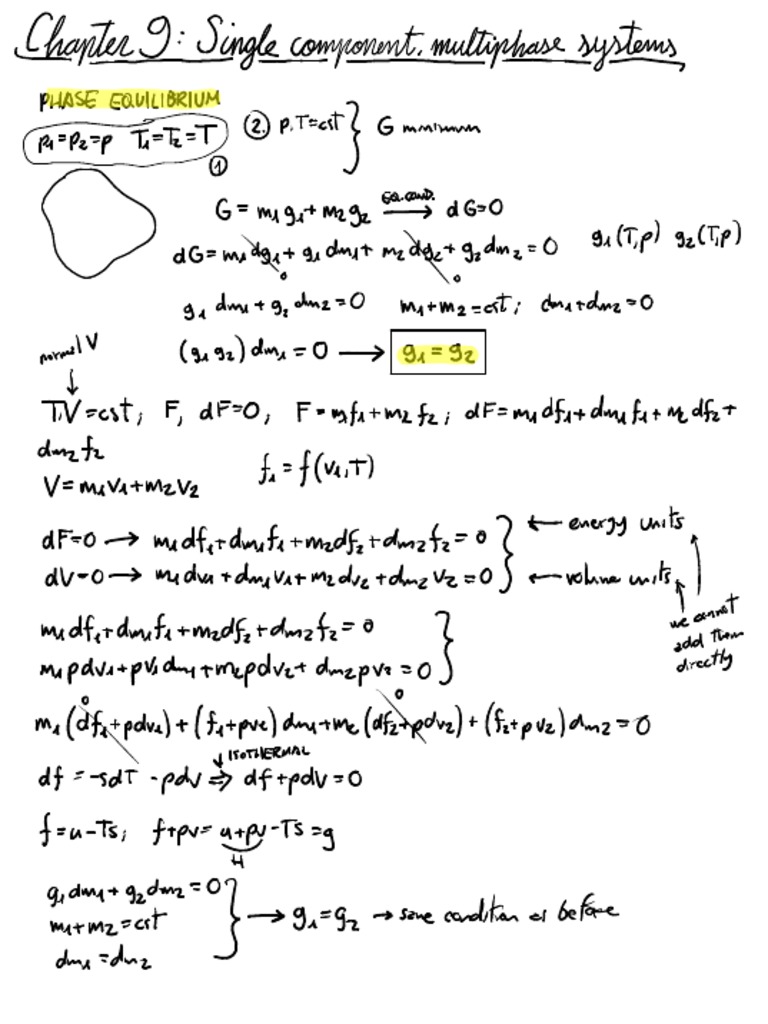 Chapter 9: Single component, multiphase systems
PHASE EQUILIBRIUM
p₁=p₂=p T₁=T₂=T ① ② p,T=cst } G minimum
G = m₁g₁ + m₂g₂ EQ.COND. → dG=0
dG = m₁dg₁ + g₁dm₁ + m₂dg₂ + g₂dm₂ = 0 g₁(T,p) g₂(T,p)
0 0
g₁ dm₁ + g₂ dm₂ = 0 m₁+m₂=cst; dm₁+dm₂=0
(g₁ g₂) dm₁ = 0 → g₁ = g₂
normal V
↓
T,V=cst; F, dF=0; F=m₁f₁+m₂f₂; dF=m₁df₁+dm₁f₁+m₂df₂+
dm₂f₂
f₁ = f(v₁,T)
V=m₁v₁+m₂v₂
dF=0 → m₁df₁+dm₁f₁+m₂df₂+dm₂f₂=0 } ← energy units
dV=0 → m₁dv₁+dm₁v₁+m₂dv₂+dm₂v₂=0 ← volume units
we cannot
add them
directly
m₁df₁+dm₁f₁+m₂df₂+dm₂f₂=0 }
m₁pdv₁+pv₁dm₁+m₂pdv₂+dm₂pv₂=0
0 0
m₁(df₁+pdv₁)+(f₁+pv₁)dm₁+m₂(df₂+pdv₂)+(f₂+pv₂)dm₂=0
↓ ISOTHERMAL
df = -sdT - pdv ⇒ df+pdv=0
f=u-Ts; f+pv=u+pv-Ts=g
H
g₁dm₁+g₂dm₂=0 }
m₁+m₂=cst → g₁=g₂ → same condition as before
dm₁=dm₂